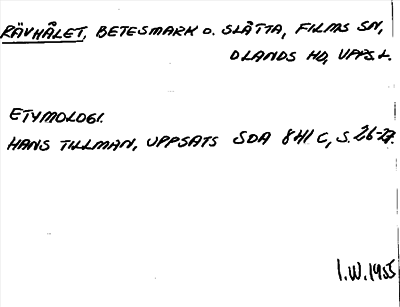 RÄVHÅLET, BETESMARK O. SLÅTTA, FILMS SN,
OLANDS HD, UPPS.L.
ETYMOLOGI.
HANS TILLMAN, UPPSATS SOA 8HI C, S. 26-27.
I.W. 1955